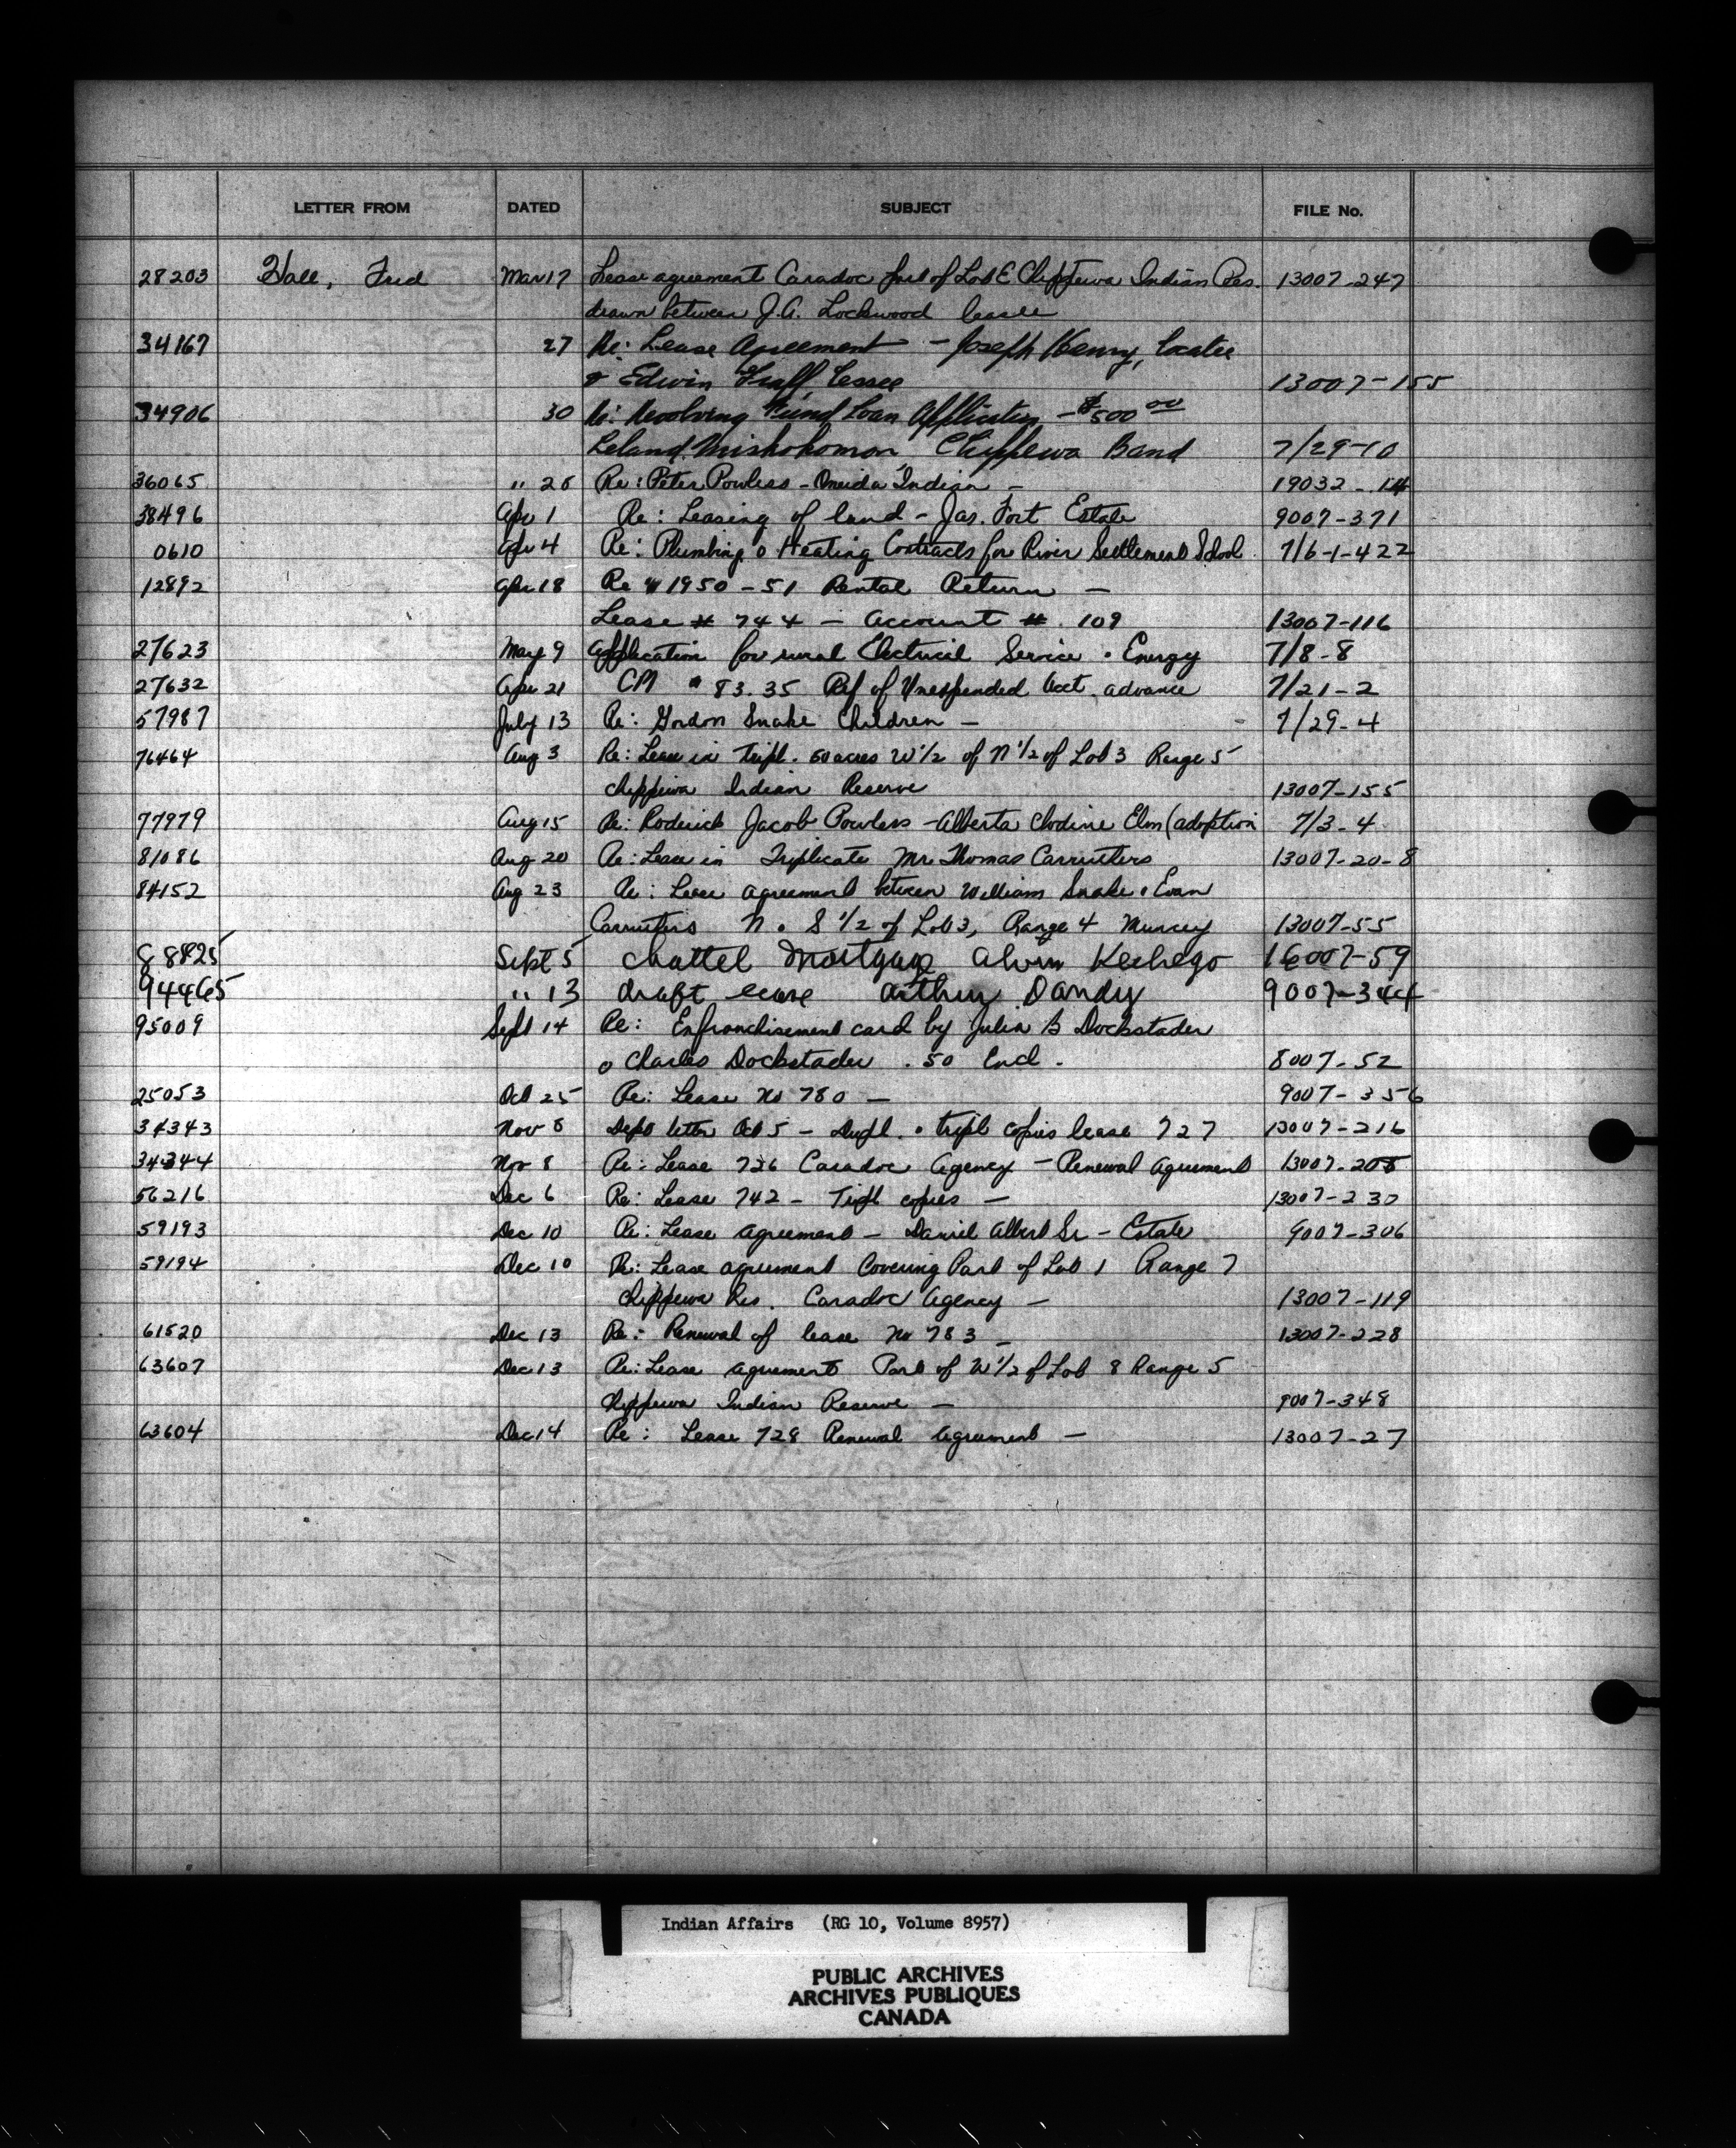 LETTER FROM DATED SUBJECT FILE No.
28203 Hall, Fred Mar 17 Lease agreement Caradoc part of Lot E Chippewa Indian Res. 13007-247
drawn between J.A. Lockwood lessee
34167 27 Re: Lease Agreement - Joseph Henry, Locatee
& Edwin lessee 13007-155
34906 30 Re: Revolving Fund Loan Application - $500 00
Leland Miskokomon Chippewa Band 7/29-10
36065 " 28 Re: Peter Powless - Oneida Indian - 19032-14
38496 Apr 1 Re: Leasing of land - Jas. Fort Estate 9007-371
0610 Apr 4 Re: Plumbing & Heating Contracts for River Settlement School 7/6-1-422
12892 Apr 18 Re 1950-51 Rental Return -
Lease # 744 - Account #. 109 13007-116
27623 May 9 Application for rural Electrical Service & Energy 7/8-8
27632 Apr 21 CM 83.35 Ref of Unexpended Acct. advance 7/21-2
57987 July 13 Re: Gordon Snake Children - 7/29-4
76464 Aug 3 Re: Lease in Tripl. 50 acres W 1/2 of N 1/2 of Lot 3 Range 5
Chippewa Indian Reserve 13007-155
77979 Aug 15 Re: Roderick Jacob Powless - Alberta Clodine Elm (adoption 7/3-4
81086 Aug 20 Re: Lease in Triplicate Mr. Thomas Carruthers 13007-20-8
84152 Aug 23 Re: Lease agreement between William Snake & Evan
Carruthers N. & S 1/2 of Lot 3, Range 4 Muncey 13007-55
88825 Sept 5 Chattel Mortgage Alvin Kechego 16007-59
94465 " 13 draft lease Arthur Dandy 9007-344
95009 Sept 14 Re: Enfranchisement card by Julia B Dockstader
& Charles Dockstader .50 Encl. 8007-52
25053 Oct 25 Re: Lease No 780 - 9007-356
34343 Nov 8 Dept letter Oct 5 - Dupl. & tripl copies lease 727 13007-216
34344 Nov 8 Re: Lease 726 Caradoc Agency - Renewal Agreement 13007-208
56216 Dec 6 Re: Lease 742 - Tripl copies - 13007-230
59193 Dec 10 Re: Lease Agreement - Daniel Albert Sr - Estate 9007-306
59194 Dec 10 Re: Lease agreement Covering Part of Lot 1 Range 7
Chippewa Res. Caradoc Agency - 13007-119
61520 Dec 13 Re: Renewal of lease No 783 - 13007-228
63607 Dec 13 Re: Lease Agreement Part of W 1/2 of Lot 8 Range 5
Chippewa Indian Reserve - 9007-348
63604 Dec 14 Re: Lease 728 Renewal Agreement - 13007-27
Indian Affairs (RG 10, Volume 8957)
PUBLIC ARCHIVES
ARCHIVES PUBLIQUES
CANADA